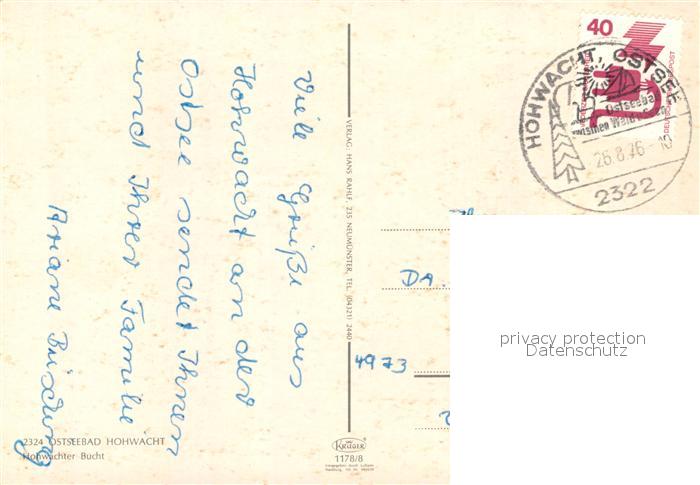 Viele Grüße aus
Howacht an der
Ostsee sendet Ihnen
und Ihrer Familie
Ariane
2324 OSTSEEBAD HOHWACHT
Hohwachter Bucht
VERLAG: HANS RAHLF, 235 NEUMÜNSTER, TEL. (04321) 2440
Krüger
1178/8
40
HOHWACHT, OSTSEE
Ostseebad
zwischen Wald
26.8.76-12
2322
DA.
4973
privacy protection
Datenschutz